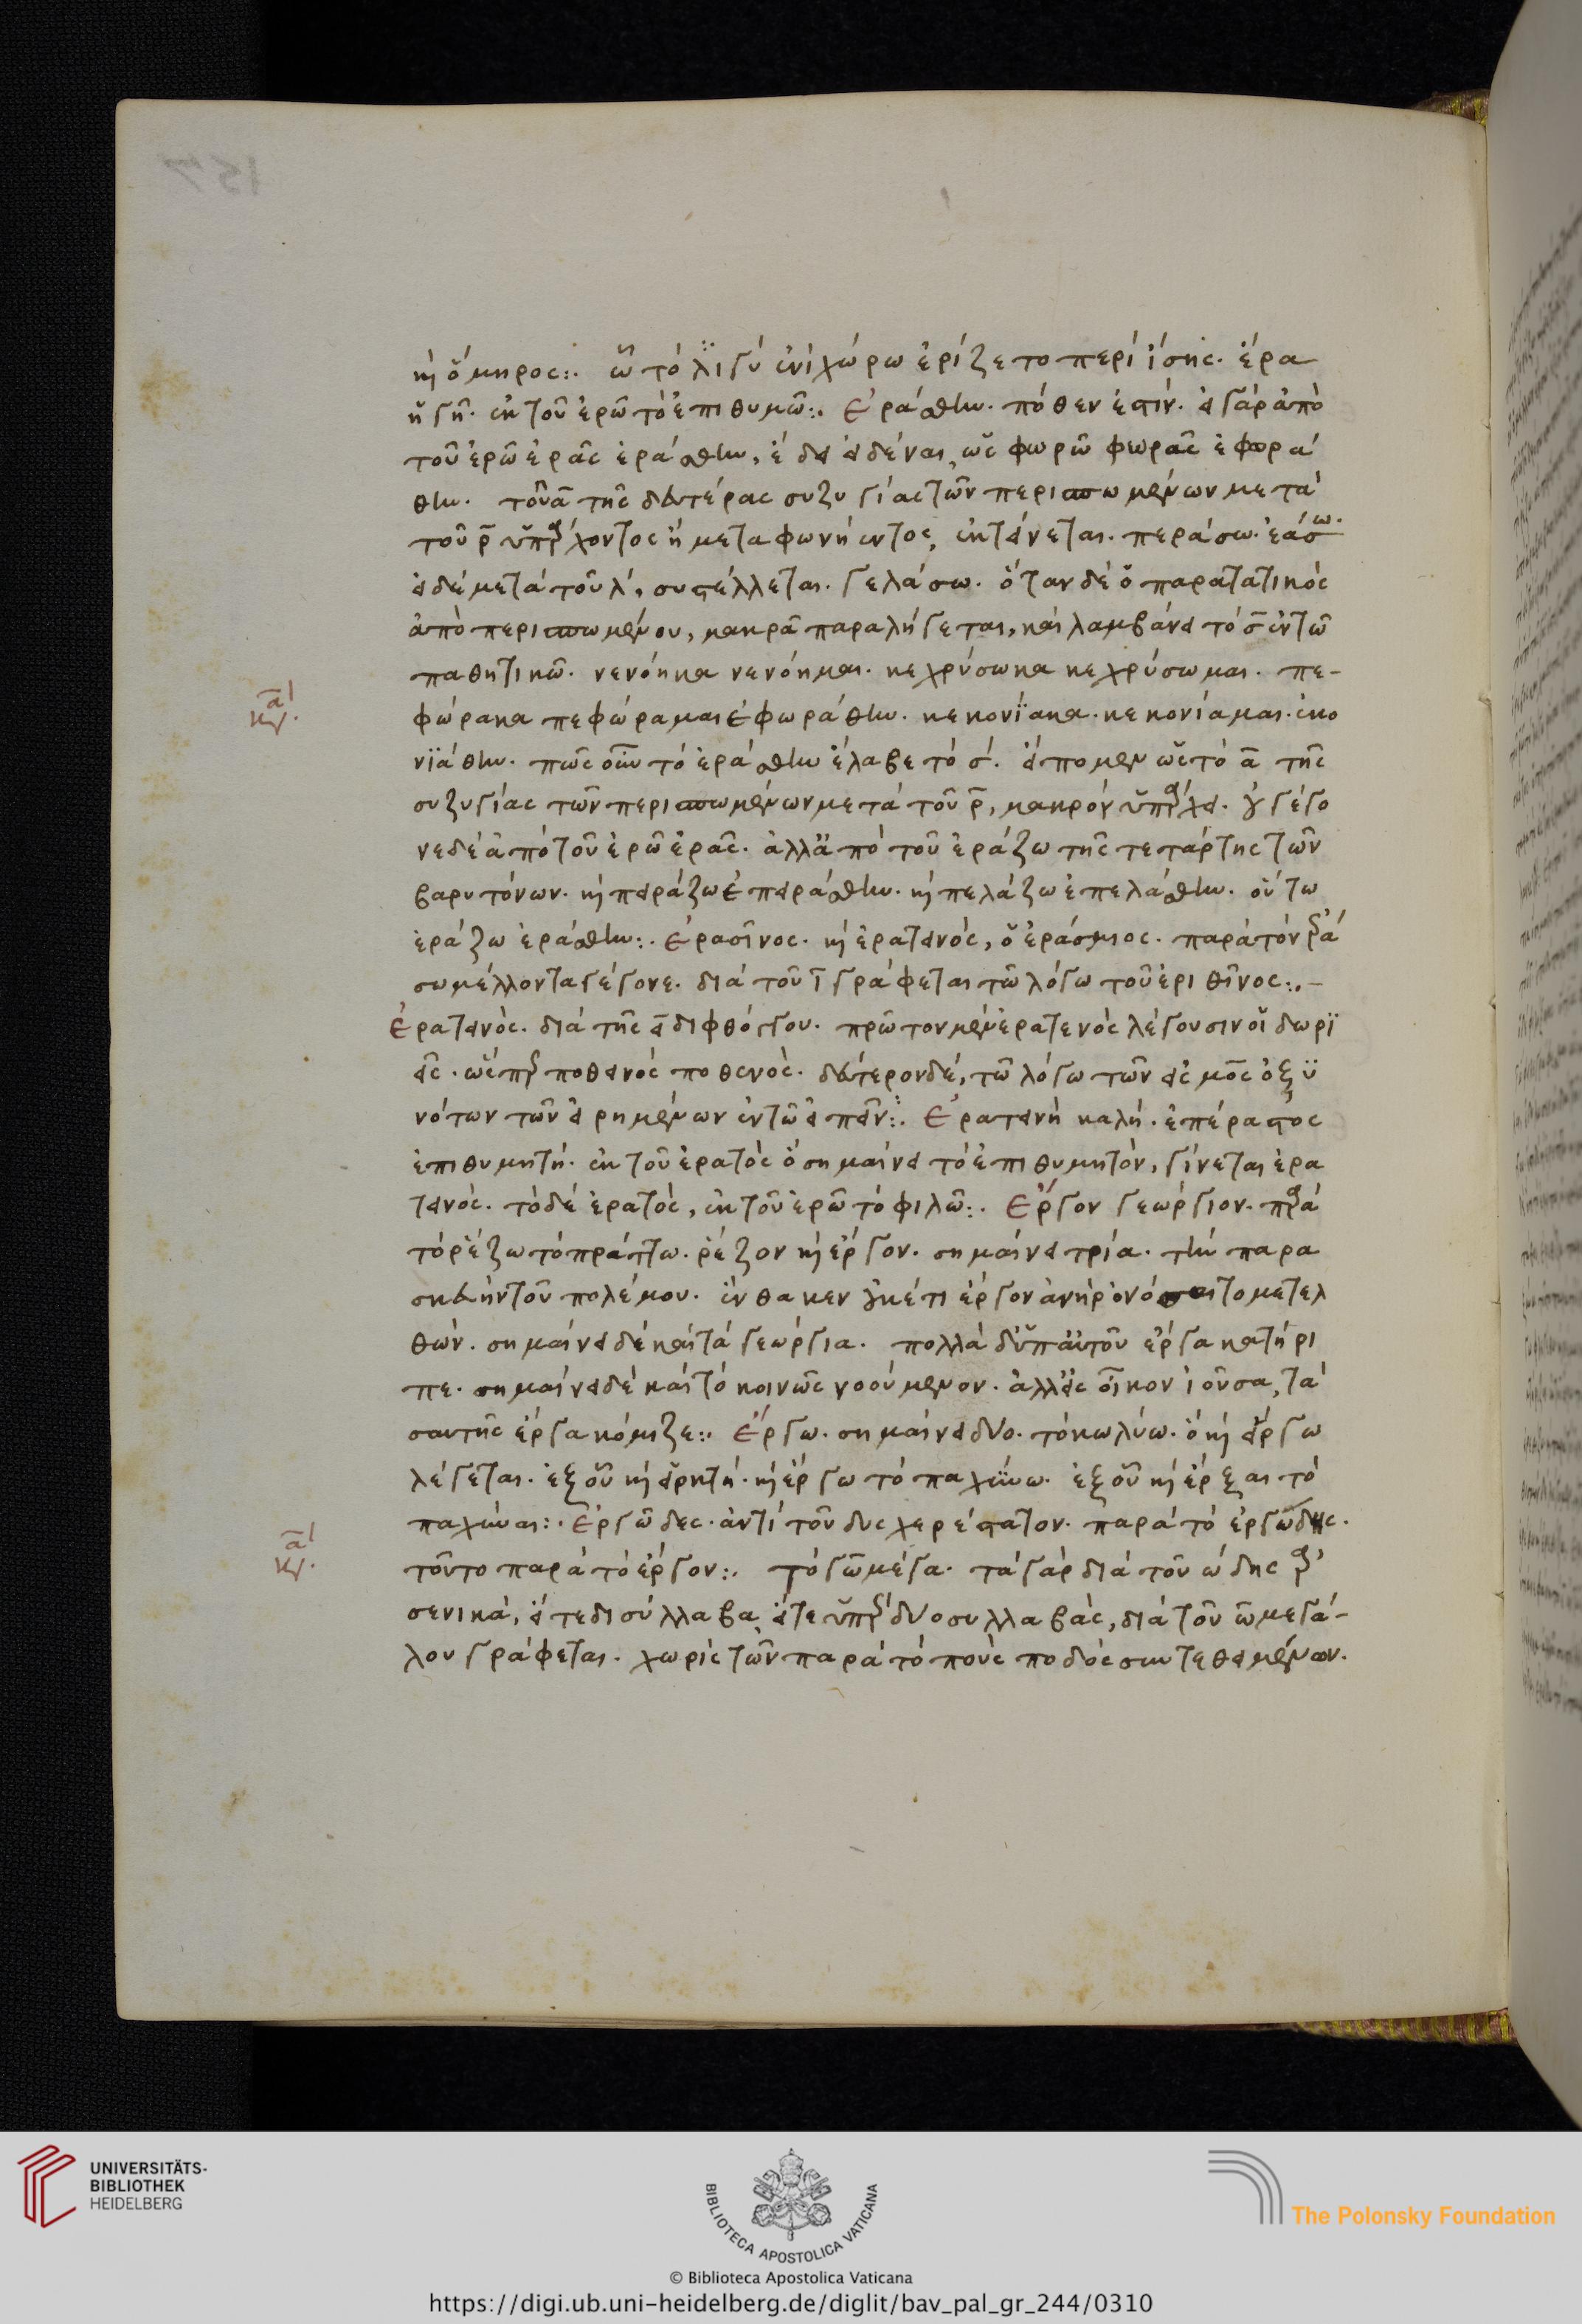 καὶ ὅμηρος:. ὥ τ' ὀλίγῳ ἐνὶ χώρῳ ἐρίζετο περὶ ἴσης. ἔρα
ἡ γῆ. ἐκ τοῦ ἐρῶ τὸ ἐπιθυμῶ:. Ἐράσθην. πόθεν ἐστίν. εἰ γὰρ ἀπὸ
τοῦ ἐρῶ ἐρᾶς ἐράσθην, ἔδει εἶναι, ὡς φωρῶ φωρᾶς ἐφωρά
θην. τοῦ ᾱ τῆς δευτέρας συζυγίας τῶν περισπωμένων μετὰ
τοῦ ρ̄ ὑπάρχοντος ἢ μετὰ φωνήεντος, ἐκτείνεται. περάσω. ἐάσω.
εἰ δὲ μετὰ τοῦ λ, συστέλλεται. γελάσω. ὅταν δὲ ὁ παρατατικὸς
ἀπὸ περισπωμένου, μακρᾶ παραλήγεται, καὶ λαμβάνει τὸ σ̄ ἐν τῶ
παθητικῶ. νενόηκα νενόημαι. κεχρύσωκα κεχρύσωμαι. πε-
φώρακα πεφώραμαι ἐφωράθην. κεκονίακα. κεκονίαμαι. ἐκο
νιάθην. πῶς οὖν τὸ ἐράσθην ἔλαβε τὸ σ. εἴπομεν ὡς τὸ ᾱ τῆς
συζυγίας τῶν περισπωμένων μετὰ τοῦ ρ̄, μακρὸν ὑπάρχει. οὐ γέγο
νε δὲ ἀπὸ τοῦ ἐρῶ ἐρᾶς. ἀλλ' ἀπὸ τοῦ ἐράζω τῆς τετάρτης τῶν
βαρυτόνων. καὶ πειράζω ἐπειράσθην. καὶ πελάζω ἐπελάσθην. οὕτω
ἐράζω ἐράσθην:. Ἐρασῖνος. καὶ ἐρατεινός, ὁ ἐράσμιος. παρὰ τὸν ἐρά
σω μέλλοντα γέγονε. διὰ τοῦ ῑ γράφεται τῶ λόγω τοῦ ἐριθῖνος:.-
Ἐρατεινός. διὰ τῆς ει διφθόγγου. πρῶτον μὲν ἐρατενὸς λέγουσιν οἱ δωρι
εῖς. ὥσπερ ποθεινὸς ποθενός. δεύτερον δέ, τῶ λόγω τῶν εἰς μος ὀξυ
νότων τῶν εἰρημένων ἐν τῶ εἰπεῖν:. Ἐρατεινὴ καλή. ἐπέραστος
ἐπιθυμητή. ἐκ τοῦ ἐρατὸς ὃ σημαίνει τὸ ἐπιθυμητόν, γίνεται ἐρα
τεινός. τὸ δὲ ἐρατός, ἐκ τοῦ ἐρῶ τὸ φιλῶ:. Ἔργον γεώργιον. παρὰ
τὸ ῥέζω τὸ πράττω. ῥέζον καὶ ἔργον. σημαίνει τρία. τὴν παρα
σκευὴν τοῦ πολέμου. ἔνθα κεν οὐκέτι ἔργον ἀνὴρ ὀνόσαιτο μετελ
θών. σημαίνει δὲ καὶ τὰ γεώργια. πολλὰ δ' ὑπ' αὐτοῦ ἔργα κατήρι
πε. σημαίνει δὲ καὶ τὸ κοινῶς νοούμενον. ἀλλ' εἰς οἶκον ἰοῦσα, τὰ
σαυτῆς ἔργα κόμιζε:. Ἔργω. σημαίνει δύο. τὸ κωλύω. ὃ καὶ εἴργω
λέγεται. ἐξ οὗ καὶ εἱρκτή. καὶ ἔργω τὸ παχύνω. ἐξ οὗ καὶ ἔρξαι τὸ
παχῦναι:. Ἐργῶδες. ἀντὶ τοῦ δυσχερέστατον. παρὰ τὸ ἐργώδης.
τοῦτο παρὰ τὸ ἔργον:. τὸ γω μέγα. τὰ γὰρ διὰ τοῦ ώδης ἀρ
σενικά, εἴτε δισύλλαβα, εἴτε ὑπὲρ δύο συλλαβάς, διὰ τοῦ ω μεγά-
λου γράφεται. χωρὶς τῶν παρὰ τὸ ποὺς ποδὸς συντεθειμένων.
UNIVERSITÄTS-
BIBLIOTHEK
HEIDELBERG
BIBLIOTECA APOSTOLICA VATICANA
The Polonsky Foundation
© Biblioteca Apostolica Vaticana
https://digi.ub.uni-heidelberg.de/diglit/bav_pal_gr_244/0310